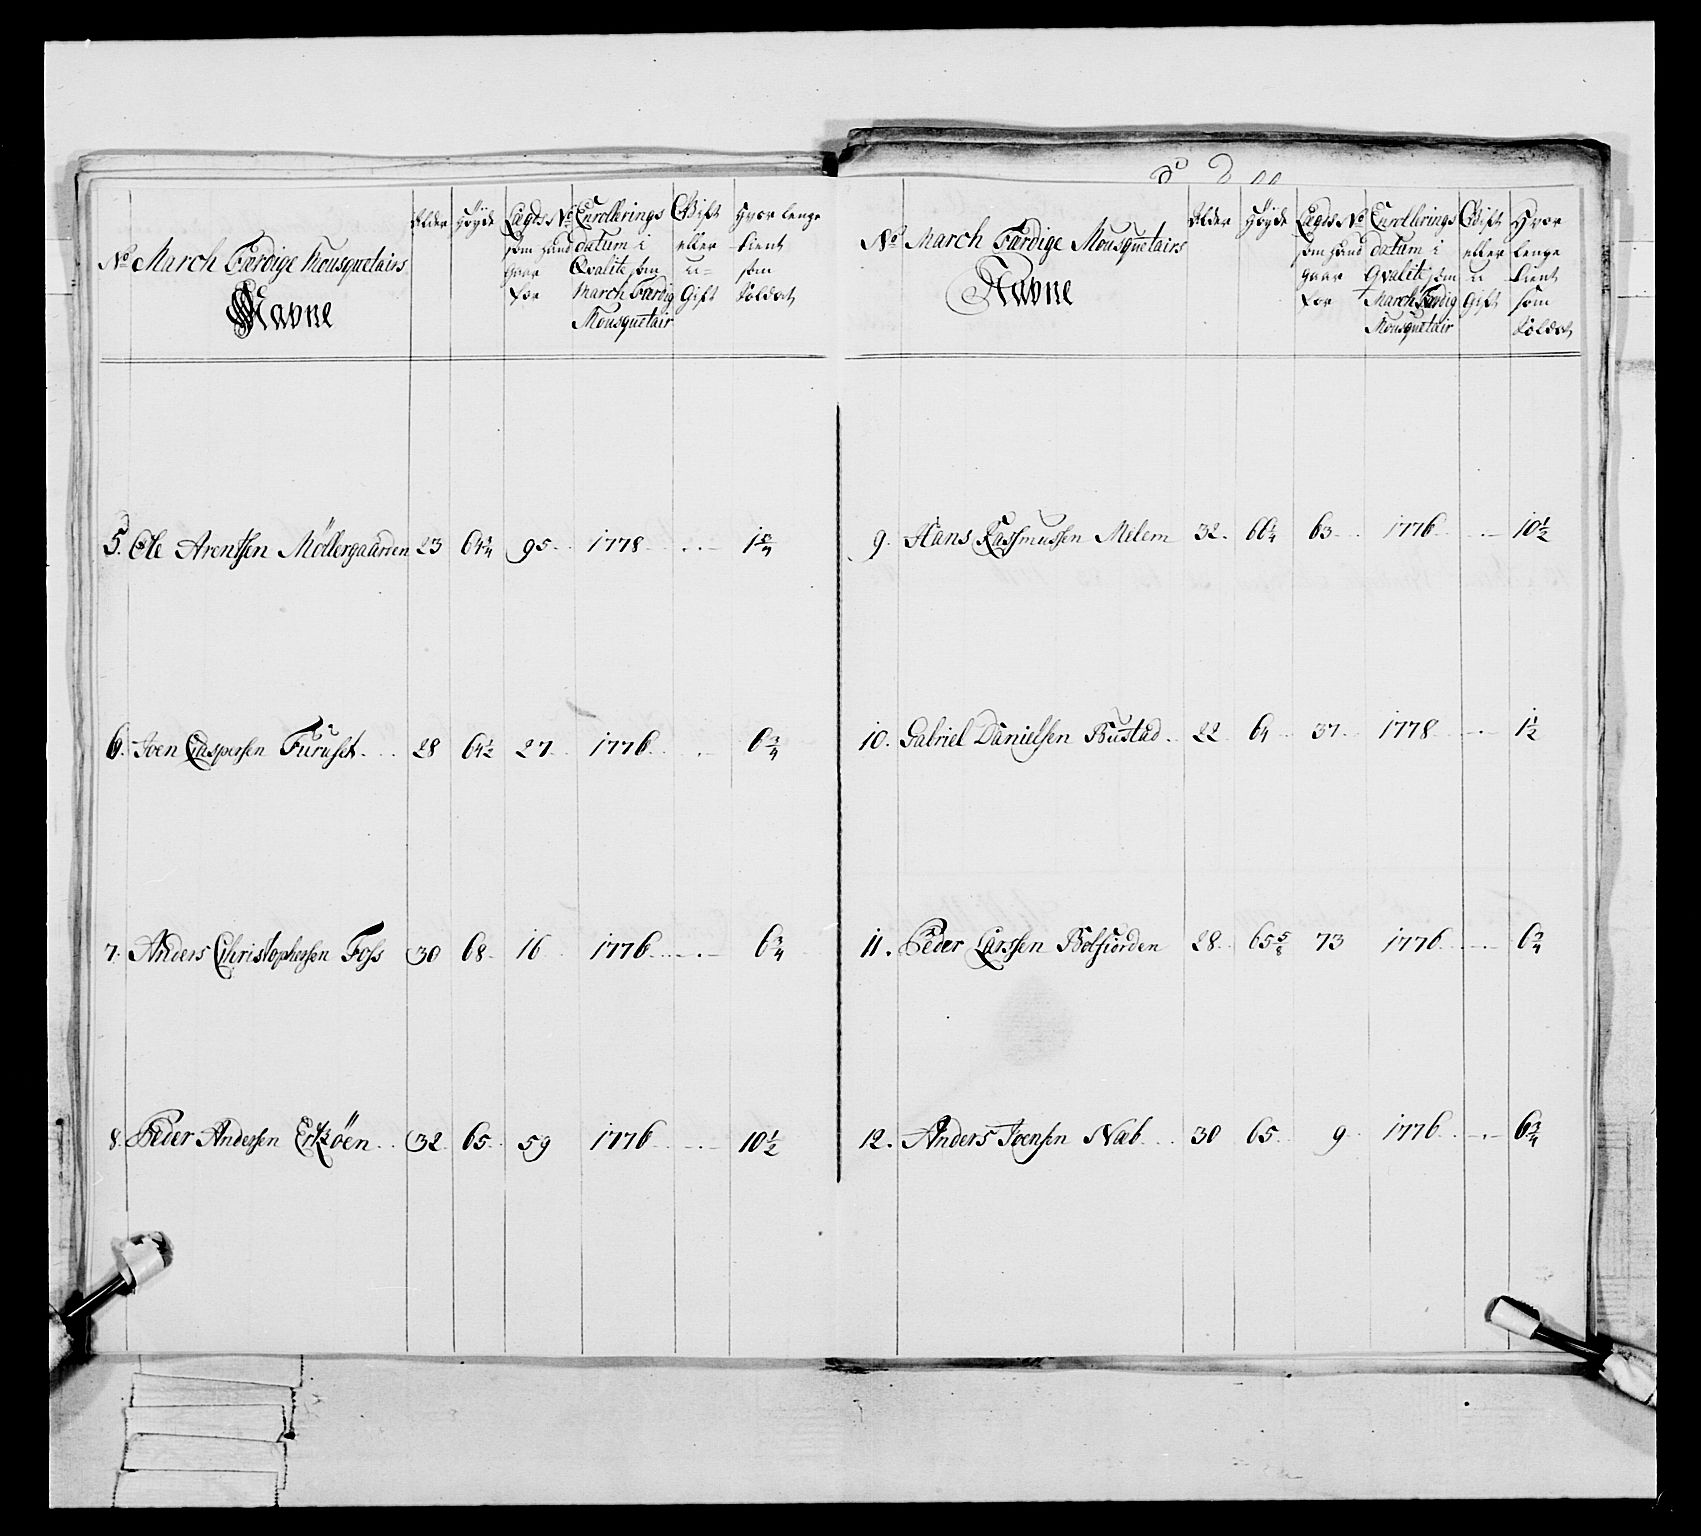 No March Færdige Mousquetairs Navne | Alder | Høyde | Lægds No som hand gaar for | Enrollerings datum i Qvalite som March Færdig Mousquetair | Gift eller u= Gift | Hvor lenge tient som Soldat
5. Ole Arentsen Möllergaarden 23 64¾ 95 1778 . . —
6. Joen Caspersen Furuset 28 64½ 27 1776 . — 6¾
7. Anders Christophersen Foss 30 68 16 1776 . — 6¾
8. Peder Andersen Erköen 32 65 59 1776 . — 10½
No March Færdige Mousquetairs Navne | Alder | Høyde | Lægds No som hand gaar for | Enrollerings datum i Qvalite som March Færdig Mousquetair | Gift eller u Gift | Hvor lenge tient som Soldat
9. Hans Rassmussen Melem 32. 66¼ 63 1776 . — 10½
10. Gabriel Danielsen Bustad 22 64 37 1778 . — 1½
11. Peder Larssen Bolsiorden 28 65⅝ 73 1776 . — 6¾
12. Anders Joensen Næb 30 65 9 1776 . — 6¾